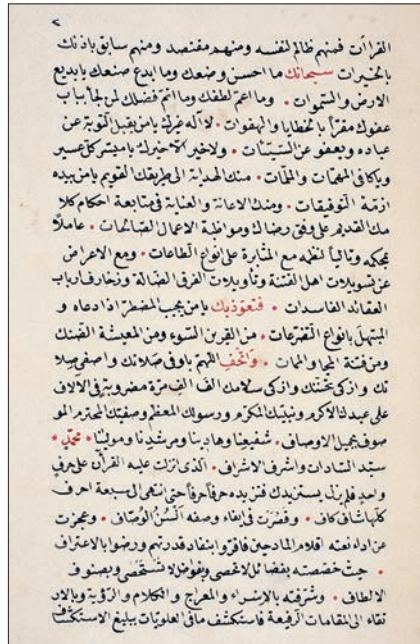 القرآن فمنهم ظالم لنفسه ومنهم مقتصد ومنهم سابق باذنك
بالخيرات سبحانك ما احسن وضعك وما ابدع صنعك يا بديع
الارض والسموات . وما اعم لطفك وما اتم فضلك لمن لجأ بباب
عفوك مقرّاً بالخطايا والهفوات . لا اله غيرك يا من يقبل التوبة عن
عباده ويعفو عن السيئات . ولا خير الا خيرك يا ميسر كل عسير
ويا كافي المهمات والملمات . منك الهداية الى طريقك القويم يا من بيده
ازمة التوفيقات . ومنك الاعانة والعناية في متابعة احكام كلا
مك القديم على وفق رضاك ومواظبة الاعمال الصالحات . عاملاً
بمحكمه وتالياً لنظمه مع المثابرة على انواع الطاعات . ومع الاعراض
عن تسويلات اهل الفتنة وتأويلات الفرق الضالة وزخارف ارباب
العقائد الفاسدات . فنعوذ بك يا من يجيب المضطر اذا دعاه و
المبتهل بانواع التضرعات . من القرين السوء ومن المعيشة الضنك
ومن فتنة المحيا والممات . واتحف اللهم باوفى صلاتك واصفى صلا
تك وازكى تحيتك وازكى سلامك الف الف مرة مضروبة في الالاف
على عبدك الاكرم ونبيك المكرم ورسولك المعظم وصفيك المحترم المو
صوف بجميل الاوصاف . شفيعنا وهادينا ومرشدنا ومولينا * محمد *
سيد السادات واشرف الاشراف . الذي انزلت عليه القرآن على حرف
واحد فلم يزل يستزيدك فتزيده حرفاً حرفاً حتى انتهى الى سبعة احرف
كلها شاف كاف . وقصرت في ايفاء وصفه السن الوصاف . وعجزت
عن اداء نعته اقلام المادحين فاقروا بنفاد قدرتهم ورضوا بالاعتراف
. حيث خصصته بفضائل لا تحصى وبفواضل لا تستحصى وبصنوف
الالطاف . وشرفته بالاسراء والمعراج والكلام والرؤية وبالار
تقاء الى المقامات الرفيعة فاستكشف ما في العلويات ببليغ الاستكشاف